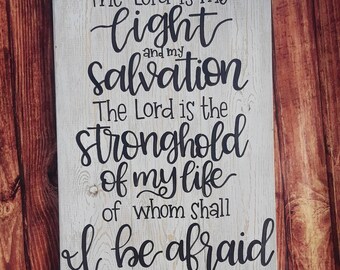 The Lord is my
light
and my
salvation
The Lord is the
stronghold
of my life
of whom shall
I be afraid